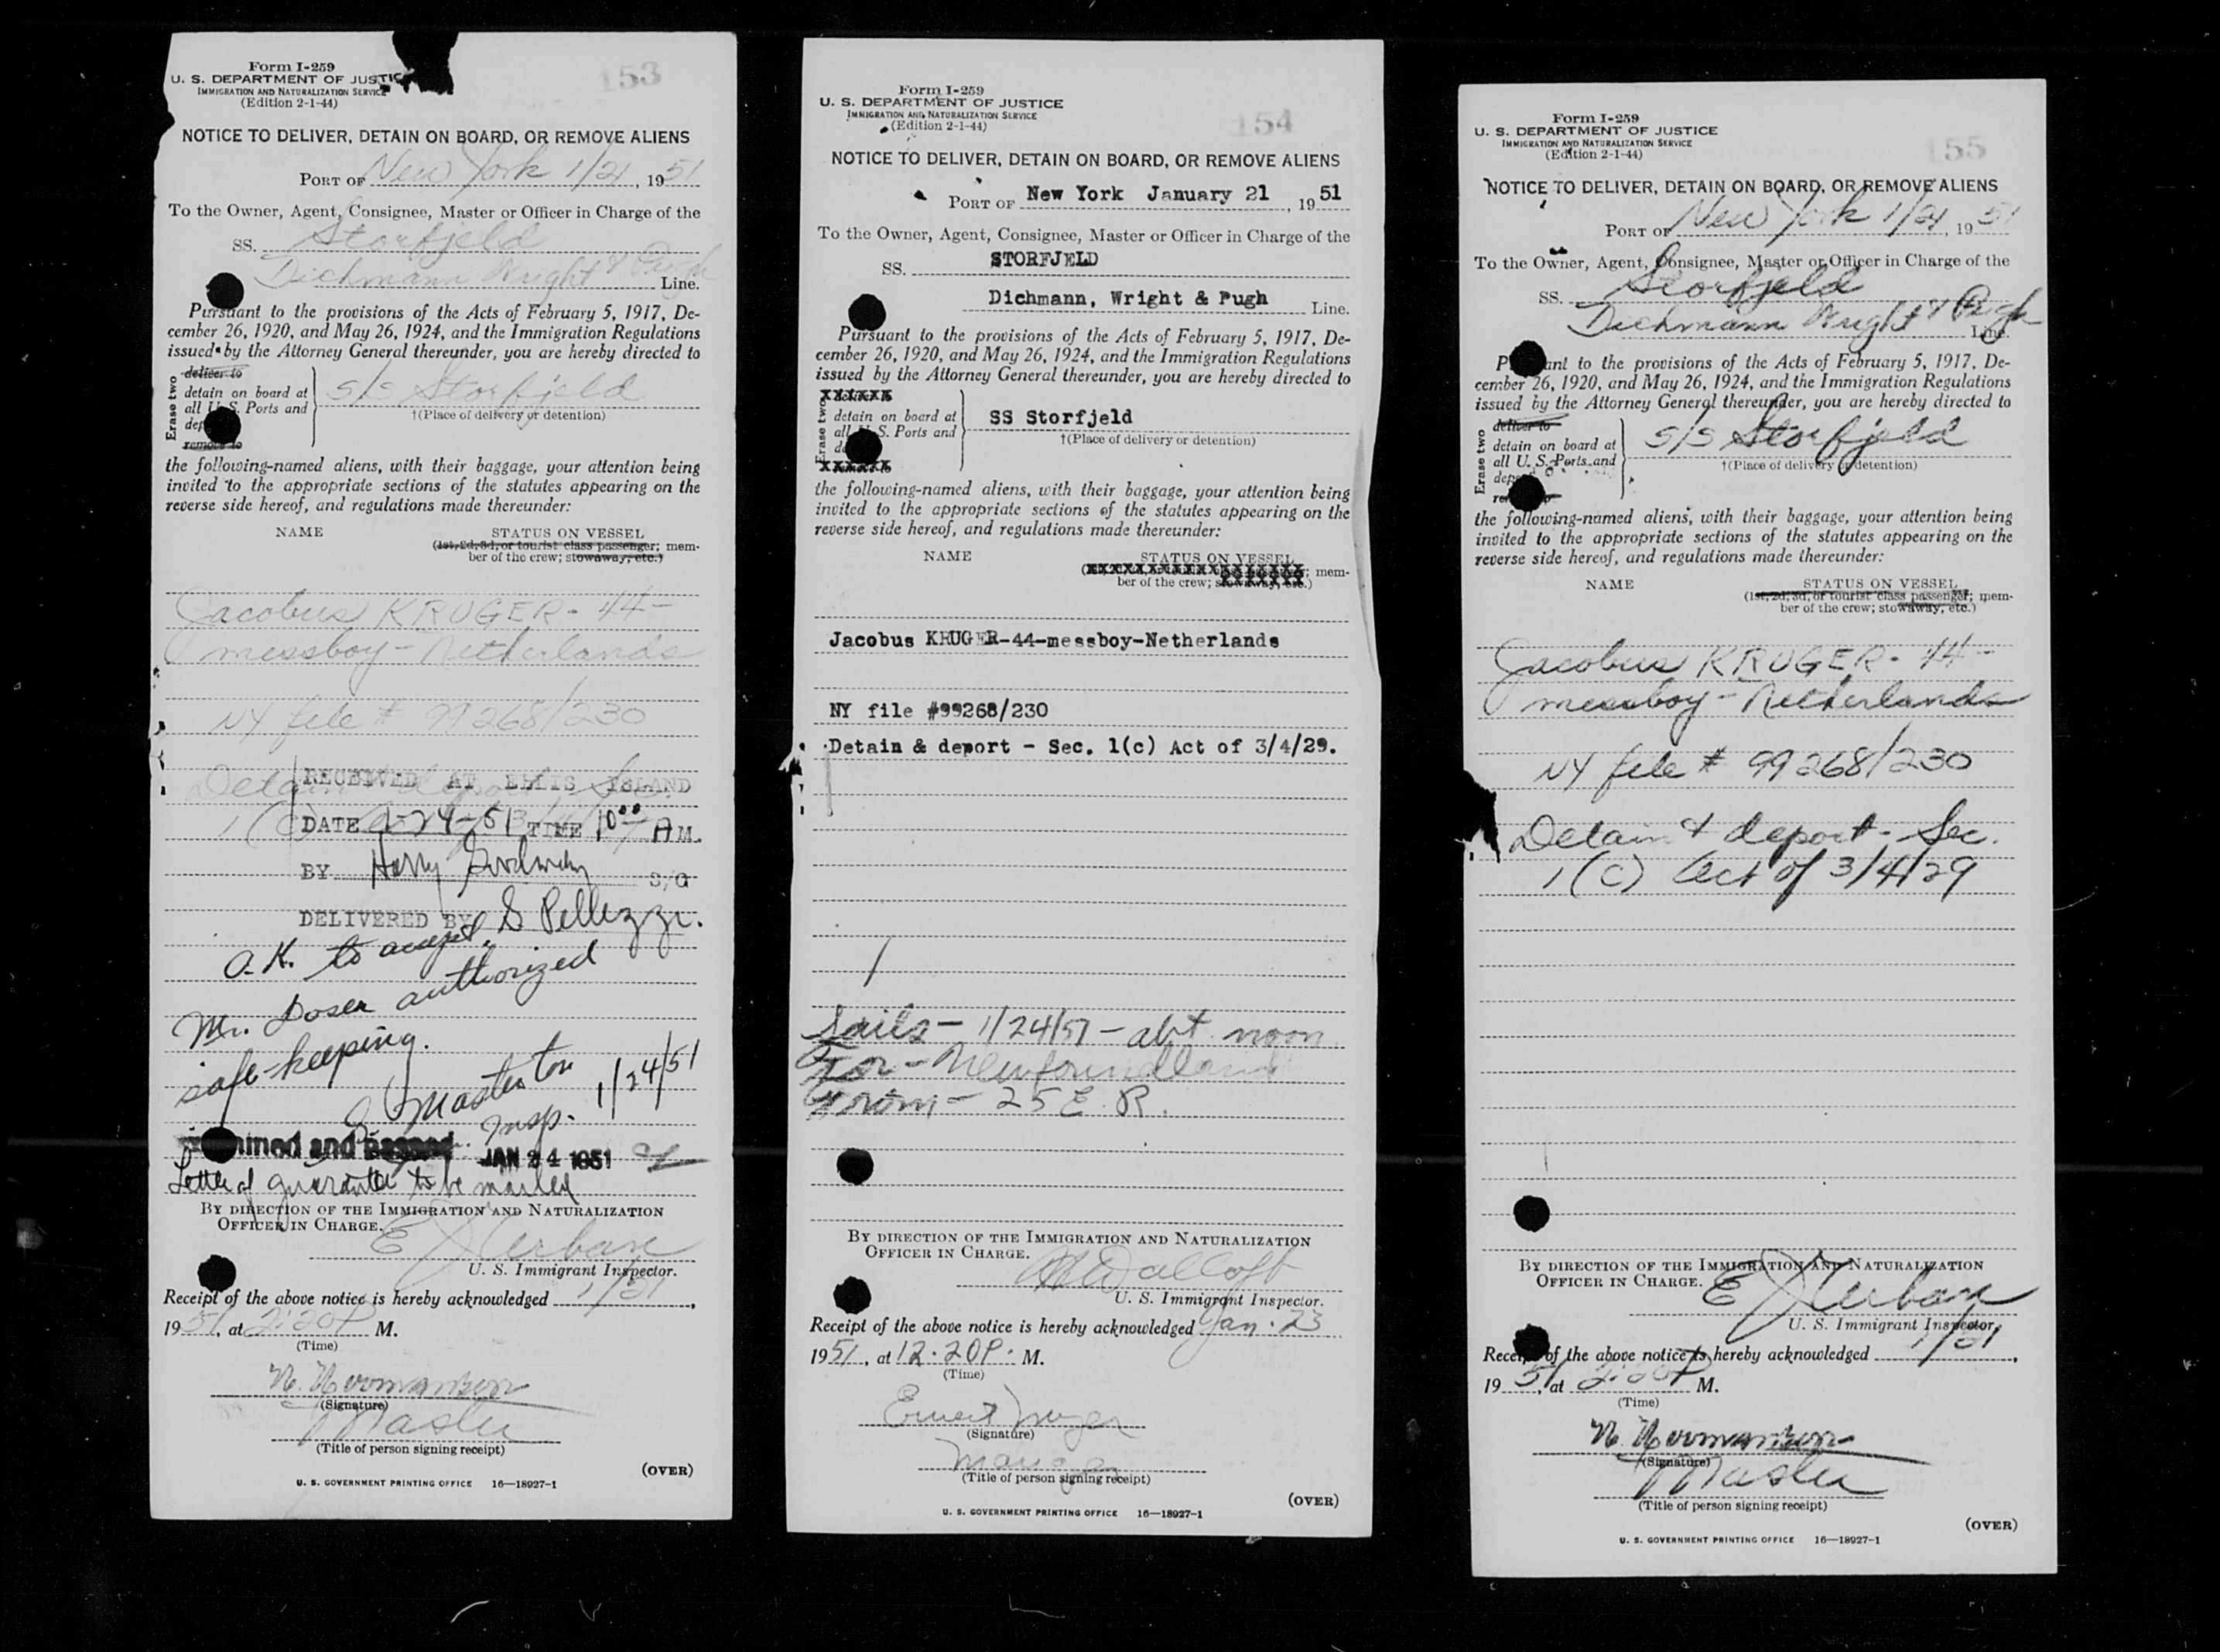 153
Form I-259
U. S. DEPARTMENT OF JUSTIC
IMMIGRATION AND NATURALIZATION SERVICE
(Edition 2-1-44)
NOTICE TO DELIVER, DETAIN ON BOARD, OR REMOVE ALIENS
PORT OF New York 1/21, 1951
To the Owner, Agent, Consignee, Master or Officer in Charge of the
SS. Storfjeld
Dichmann Wright & Pugh Line.
Pursuant to the provisions of the Acts of February 5, 1917, De-
cember 26, 1920, and May 26, 1924, and the Immigration Regulations
issued by the Attorney General thereunder, you are hereby directed to
Erase two
deliver to
detain on board at
all U. S. Ports and
dep
remove to
S/S Storfjeld
†(Place of delivery or detention)
the following-named aliens, with their baggage, your attention being
invited to the appropriate sections of the statutes appearing on the
reverse side hereof, and regulations made thereunder:
NAME STATUS ON VESSEL
(1st, 2d, 3d, or tourist class passenger; mem-
ber of the crew; stowaway, etc.)
Jacobus KRUGER - 44 -
messboy - Netherlands
NY file # 99268/230
Detain & deport - Sec.
1 (c) Act of 3/4/29
RECEIVED AT ELLIS ISLAND
DATE 1-24-51 TIME 10:00 A M.
BY Harry S/G
DELIVERED BY S Pellezzi.
O.K. to accept.
Mr. Doser authorized
safe-keeping.
Masterton
Insp. 1/24/51
mined and passed JAN 24 1951
Letter of guarantee to be mailed
BY DIRECTION OF THE IMMIGRATION AND NATURALIZATION
OFFICER IN CHARGE.
E J Urban
U. S. Immigrant Inspector.
Receipt of the above notice is hereby acknowledged 1/21,
1951, at 2:20 P M.
(Time)
(Signature)
Master
(Title of person signing receipt)
(OVER)
U. S. GOVERNMENT PRINTING OFFICE 16—18927-1
154
Form I-259
U. S. DEPARTMENT OF JUSTICE
IMMIGRATION AND NATURALIZATION SERVICE
(Edition 2-1-44)
NOTICE TO DELIVER, DETAIN ON BOARD, OR REMOVE ALIENS
PORT OF New York January 21, 1951
To the Owner, Agent, Consignee, Master or Officer in Charge of the
SS. STORFJELD
Dichmann, Wright & Pugh Line.
Pursuant to the provisions of the Acts of February 5, 1917, De-
cember 26, 1920, and May 26, 1924, and the Immigration Regulations
issued by the Attorney General thereunder, you are hereby directed to
Erase two
XXXXXX
detain on board at
all U. S. Ports and
XXXXXX
SS Storfjeld
†(Place of delivery or detention)
the following-named aliens, with their baggage, your attention being
invited to the appropriate sections of the statutes appearing on the
reverse side hereof, and regulations made thereunder:
NAME STATUS ON VESSEL
(XXXXXXXXXXXXXXXXXXX; mem-
ber of the crew; stowaway, etc.)
Jacobus KRUGER-44-messboy-Netherlands
NY file #99268/230
Detain & deport - Sec. 1(c) Act of 3/4/29.
Sails - 1/24/51 - abt noon
For - Newfoundland
From - 25 E. R.
BY DIRECTION OF THE IMMIGRATION AND NATURALIZATION
OFFICER IN CHARGE.
U. S. Immigrant Inspector.
Receipt of the above notice is hereby acknowledged Jan. 23
1951, at 12.20 P. M.
(Time)
Ernest
(Signature)
(Title of person signing receipt)
(OVER)
U. S. GOVERNMENT PRINTING OFFICE 16—18927-1
155
Form I-259
U. S. DEPARTMENT OF JUSTICE
IMMIGRATION AND NATURALIZATION SERVICE
(Edition 2-1-44)
NOTICE TO DELIVER, DETAIN ON BOARD, OR REMOVE ALIENS
PORT OF New York 1/21, 1951
To the Owner, Agent, Consignee, Master or Officer in Charge of the
SS. Storfjeld
Dichmann Wright & Pugh Line.
P ant to the provisions of the Acts of February 5, 1917, De-
cember 26, 1920, and May 26, 1924, and the Immigration Regulations
issued by the Attorney General thereunder, you are hereby directed to
Erase two
deliver to
detain on board at
all U. S. Ports and
dep
S/S Storfjeld
†(Place of delivery or detention)
the following-named aliens, with their baggage, your attention being
invited to the appropriate sections of the statutes appearing on the
reverse side hereof, and regulations made thereunder:
NAME STATUS ON VESSEL
(1st, 2d, 3d, or tourist class passenger; mem-
ber of the crew; stowaway, etc.)
Jacobus KRUGER - 44 -
messboy - Netherlands
NY file # 99268/230
Detain & deport - Sec.
1 (c) Act of 3/4/29
BY DIRECTION OF THE IMMIGRATION AND NATURALIZATION
OFFICER IN CHARGE.
E J Urban
U. S. Immigrant Inspector.
Receipt of the above notice is hereby acknowledged 1/21,
1951, at 2:20 P M.
(Time)
(Signature)
Master
(Title of person signing receipt)
(OVER)
U. S. GOVERNMENT PRINTING OFFICE 16—18927-1